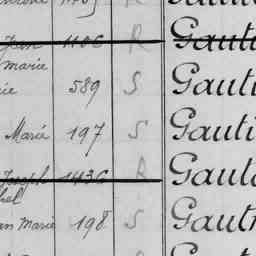 Jean 1106 R Gauti
marie
ie 589 S Gauti
Marie 197 S Gauti
Joseph 1436 R Gaut
hel
an Marie 198 S Gautr